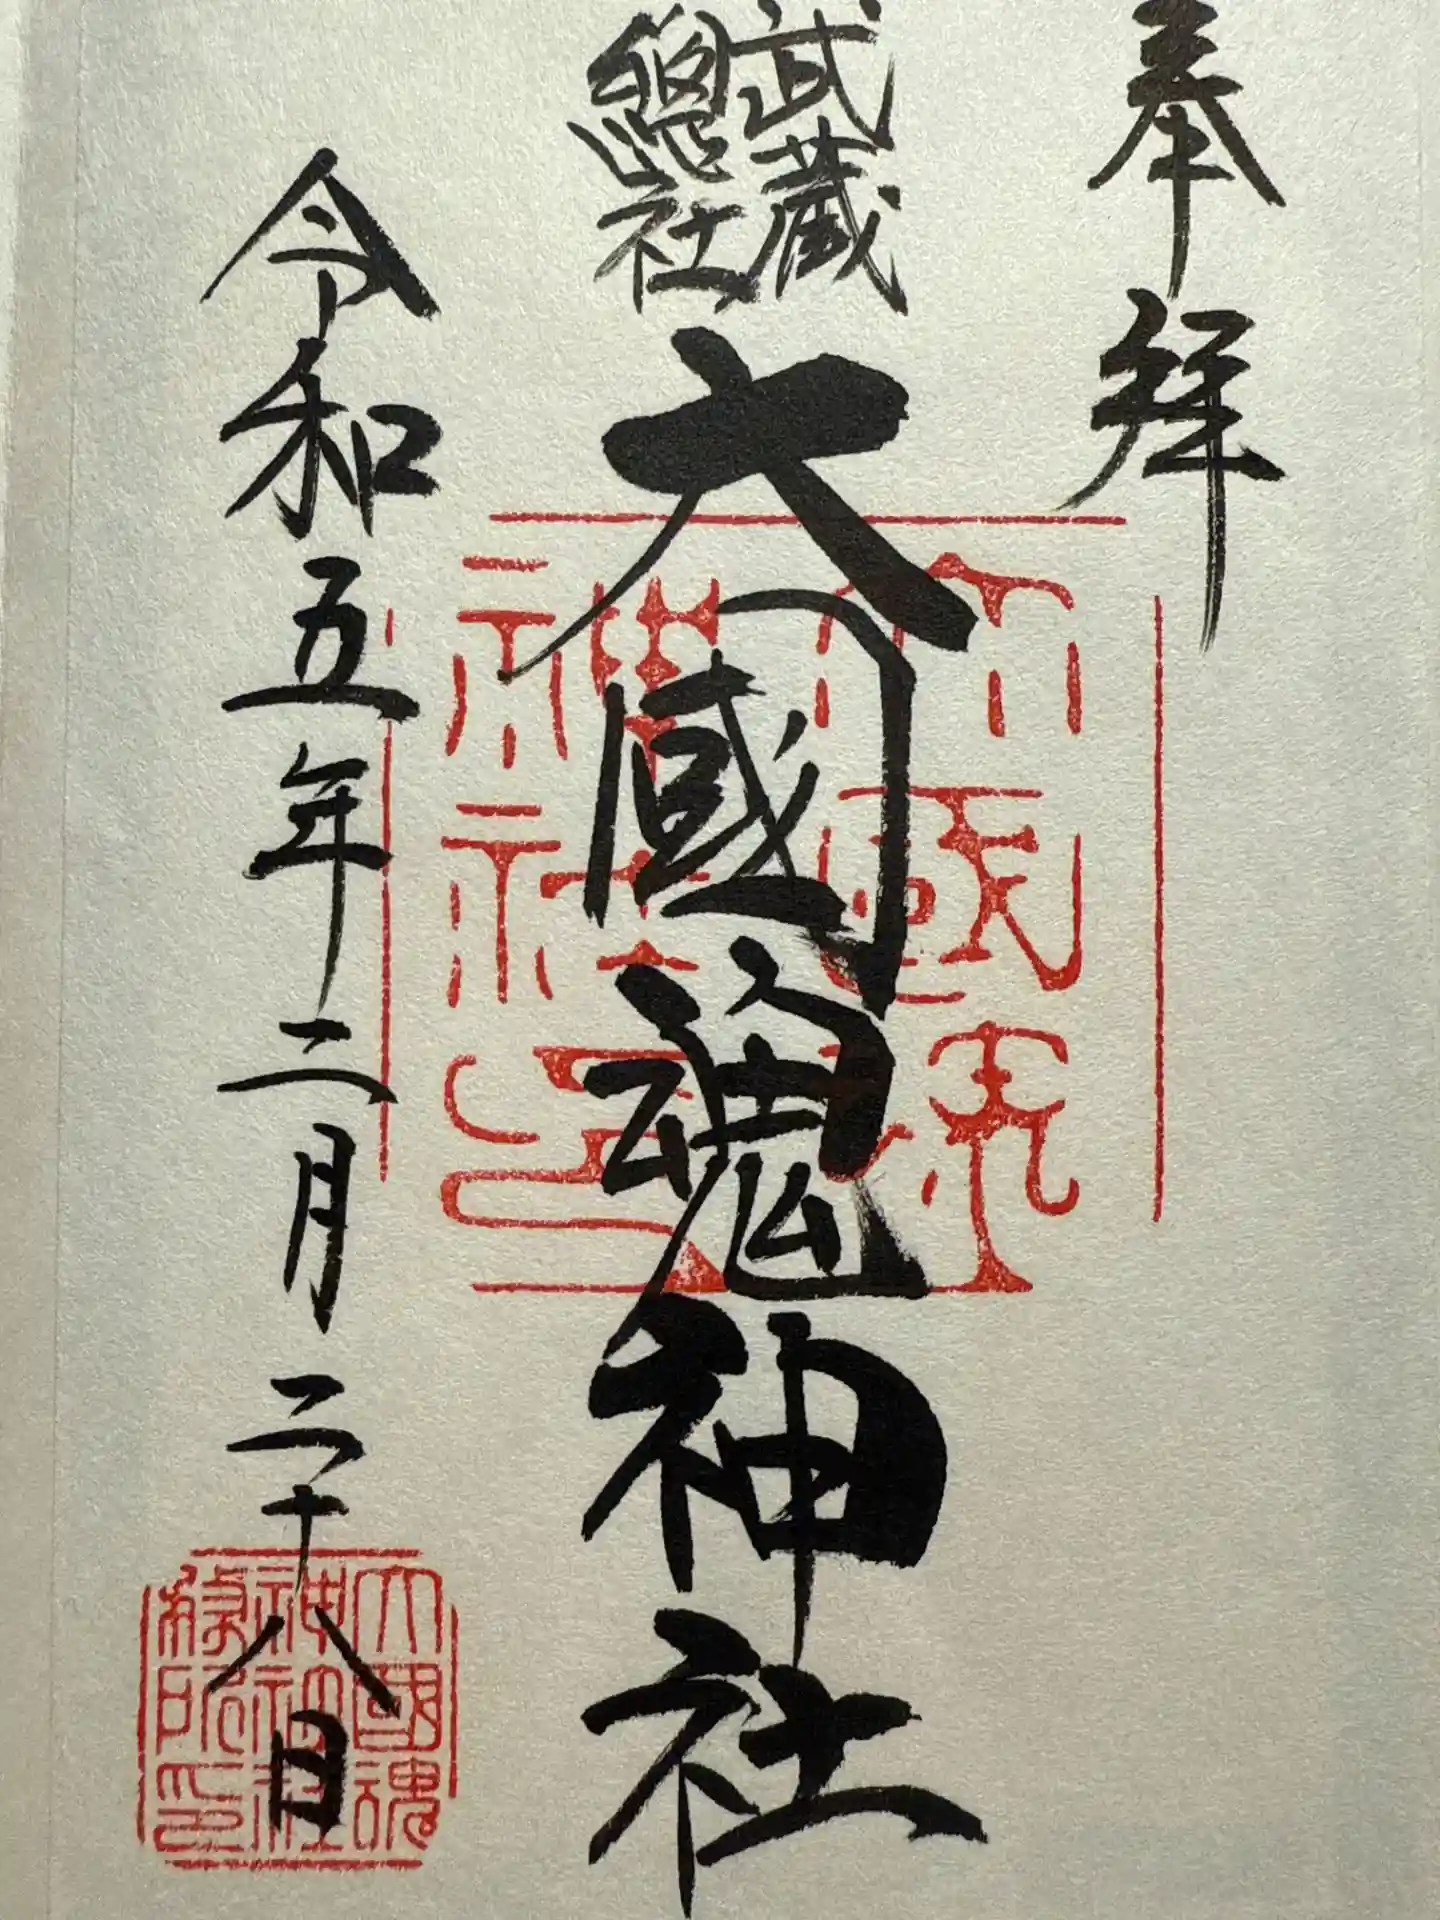 奉拝
武蔵
總社
大國魂神社
令和五年二月二十八日
大國魂
神社印
大國魂
神社
務所印